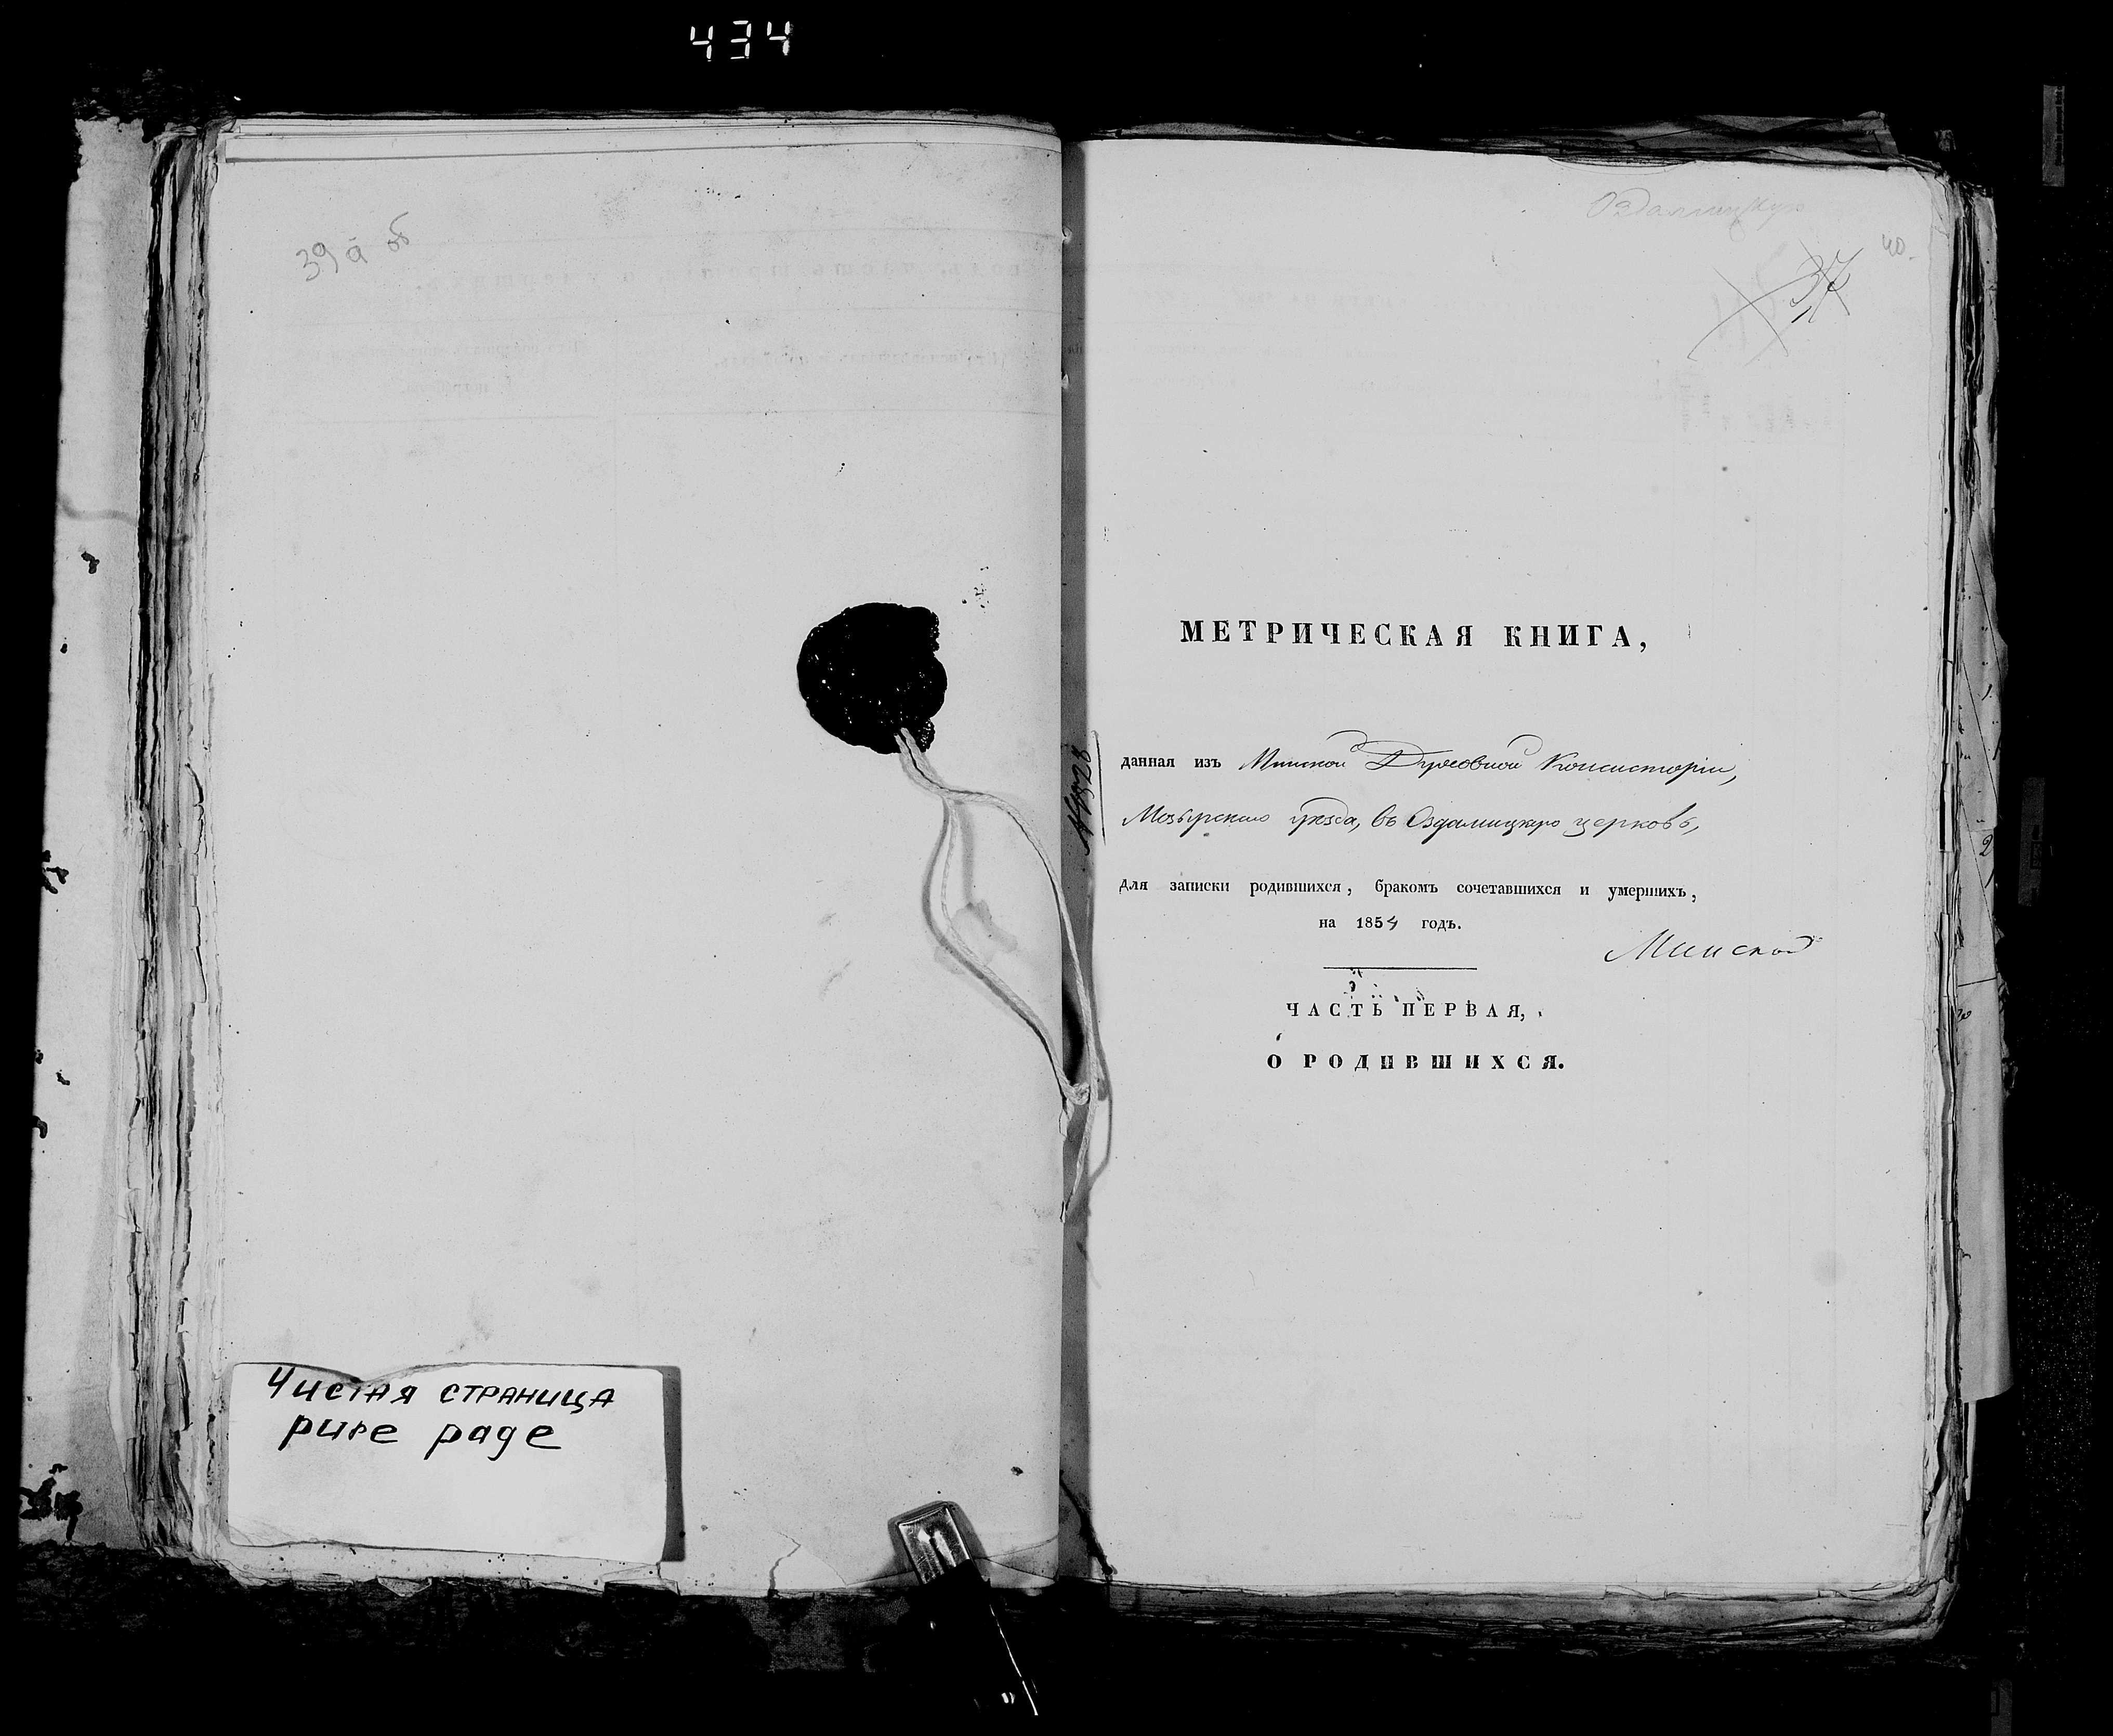 434
39 а об
Чистая страница
pure page
Оздамицкую
40.
37
МЕТРИЧЕСКАЯ КНИГА,
данная изъ Минской Духовной Консисторіи,
Мозырскаго уѣзда, въ Оздамицкую церковь,
для записки родившихся, бракомъ сочетавшихся и умершихъ,
на 1854 годъ.
Минской
ЧАСТЬ ПЕРВАЯ,
О РОДИВШИХСЯ.